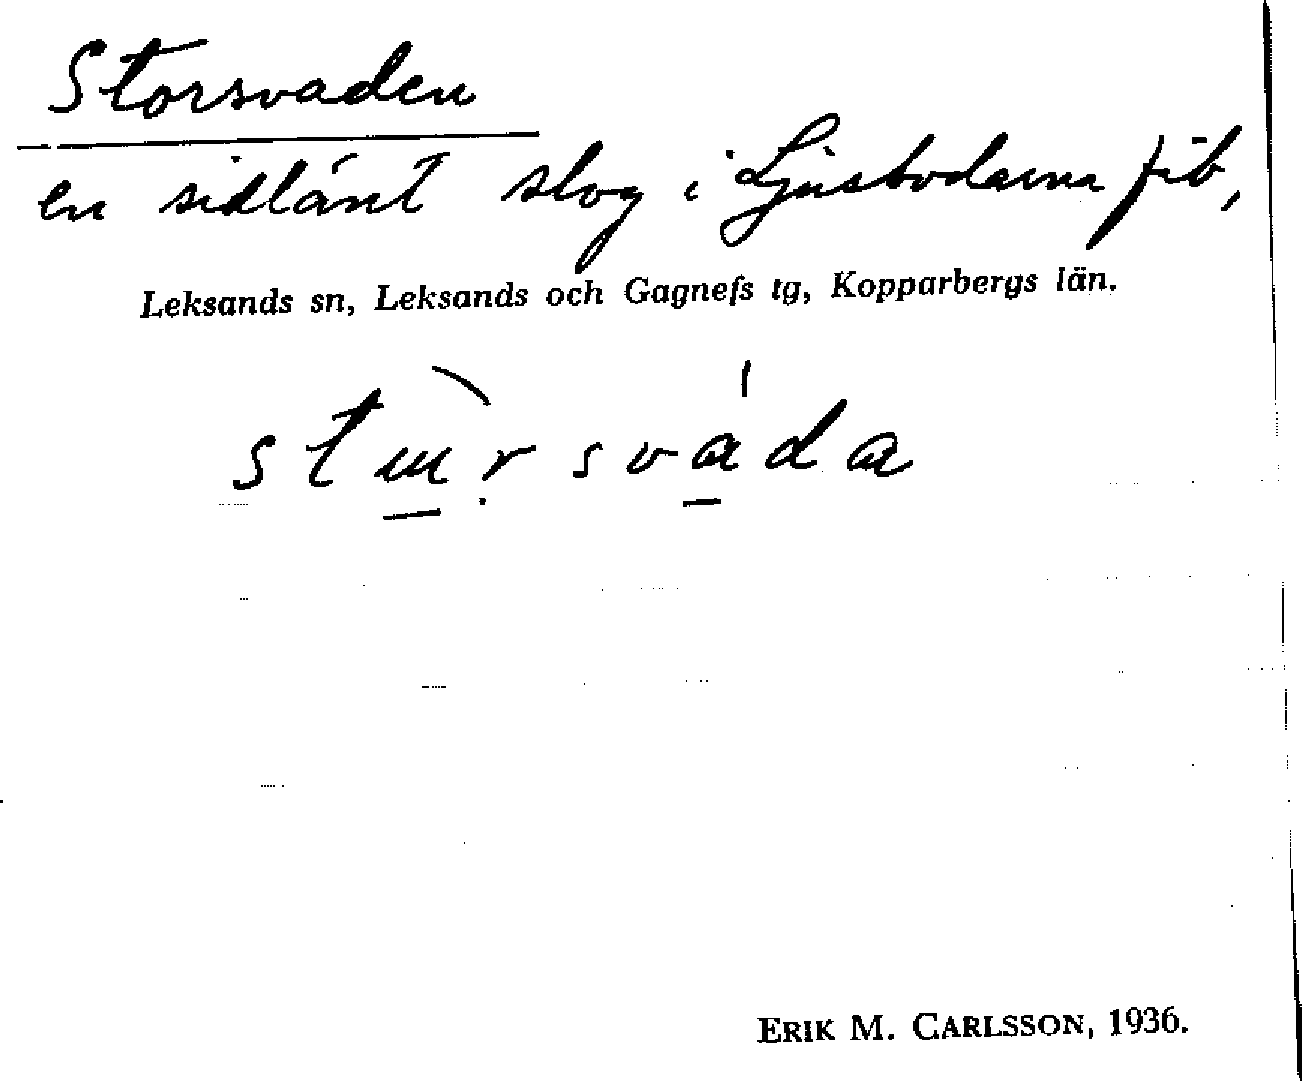 Storsvaden
en sidlänt slog i Ljusbodarna fäb,
Leksands sn, Leksands och Gagnefs tg, Kopparbergs län.
ERIK M. CARLSSON, 1936.